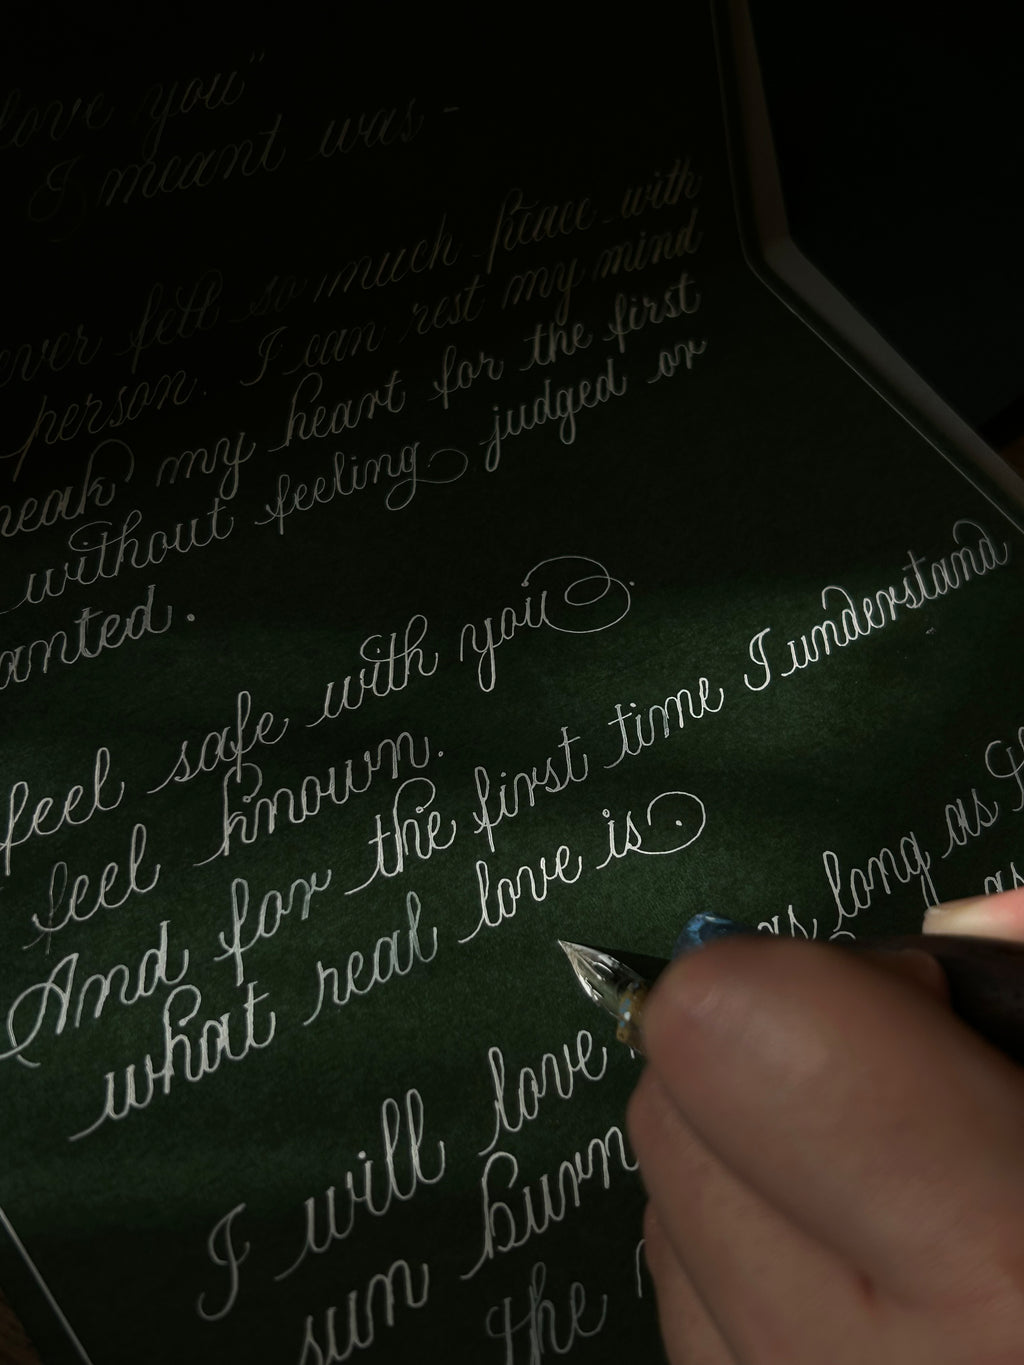 love you"
I meant was -
ever felt so much peace with
person. I can rest my mind
my heart for the first
without feeling judged or
feel safe with you.
feel known.
And for the first time I understand
what real love is.
as long as
as
I will love
sun burn
the